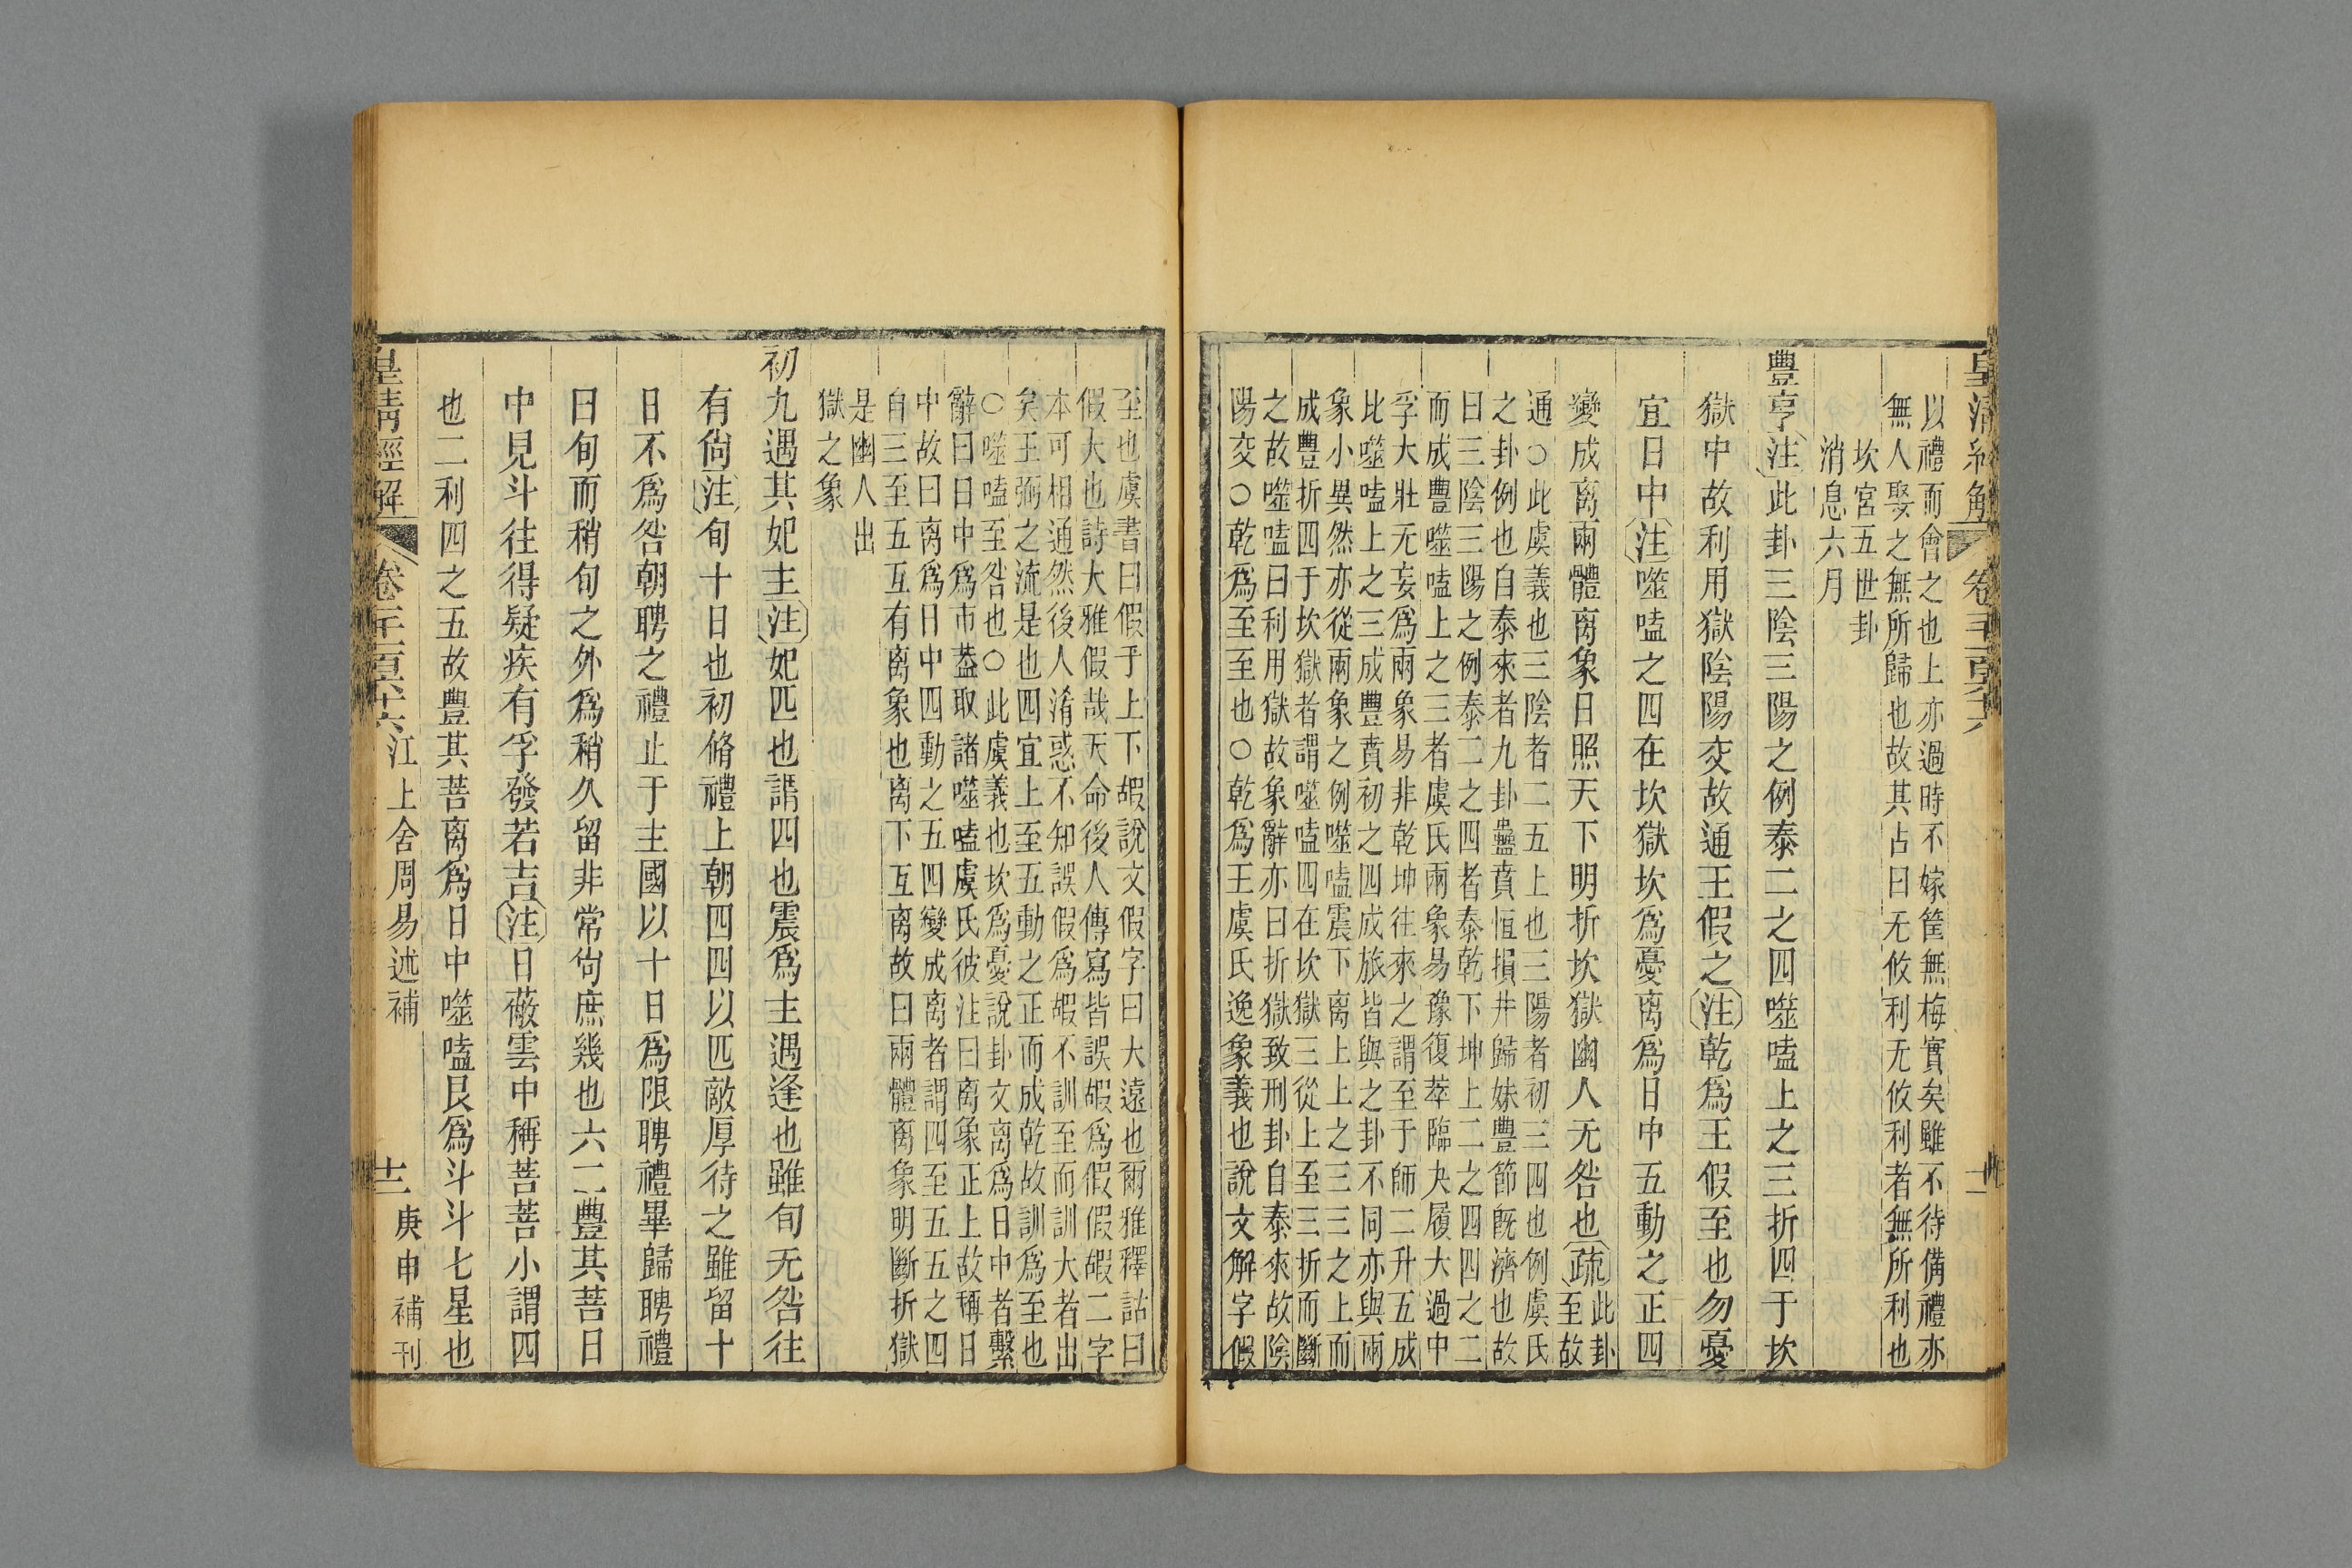 皇清經解
卷三百六
以禮而會之也上亦過時不嫁筐無梅實矣雖不待備禮亦
無人娶之無所歸也故其占曰无攸利无攸利者無所利也
坎宮五世卦
消息六月
豐亨注此卦三陰三陽之例泰二之四噬嗑上之三折四于坎
獄中故利用獄陰陽交故通王假之注乾爲王假至也勿憂
宜日中注噬嗑之四在坎獄坎爲憂离爲日中五動之正四
變成离兩體离象日照天下明折坎獄幽人无咎也疏此卦
至故
通○此虞義也三陰者二五上也三陽者初三四也例虞氏
之卦例也自泰來者九卦蠱賁恒損井歸妹豐節旣濟也故
曰三陰三陽之例泰二之四者泰乾下坤上二之四四之二
而成豐噬嗑上之三者虞氏兩象易豫復萃臨夬履大過中
孚大壯无妄爲兩象易非乾坤往來之謂至于師二升五成
比噬嗑上之三成豐賁初之四成旅皆與之卦不同亦與兩
象小異然亦從兩象之例噬嗑震下离上上之三三之上而
成豐折四于坎獄者謂噬嗑四在坎獄三從上至三折而斷
之故噬嗑曰利用獄故象辭亦曰折獄致刑卦自泰來故陰
陽交○乾爲至至也○乾爲王虞氏逸象義也說文解字假
至也虞書曰假于上下嘏說文假字曰大遠也爾雅釋詁曰
假大也詩大雅假哉天命後人傳寫皆誤嘏爲假假嘏二字
本可相通然後人淆惑不知誤假爲嘏不訓至而訓大者出
矣王弼之流是也四宜上至五動之正而成乾故訓爲至也
○噬嗑至咎也○此虞義也坎爲憂說卦文离爲日中者繫
辭曰日中爲市葢取諸噬嗑虞氏彼注曰离象正上故稱日
中故曰离爲日中四動之五四變成离者謂四至五五之四
自三至五互有离象也离下互离故曰兩體离象明斷折獄
是幽人出
獄之象
初九遇其妃主注妃匹也謂四也震爲主遇逢也雖旬无咎往
有尙注旬十日也初脩禮上朝四四以匹敵厚待之雖留十
日不爲咎朝聘之禮止于主國以十日爲限聘禮畢歸聘禮
曰旬而稍旬之外爲稍久留非常尙庶幾也六二豐其菩日
中見斗往得疑疾有孚發若吉注日蔽雲中稱菩菩小謂四
也二利四之五故豐其菩离爲日中噬嗑艮爲斗斗七星也
皇清經解
江上舍周易述補
庚申補刊